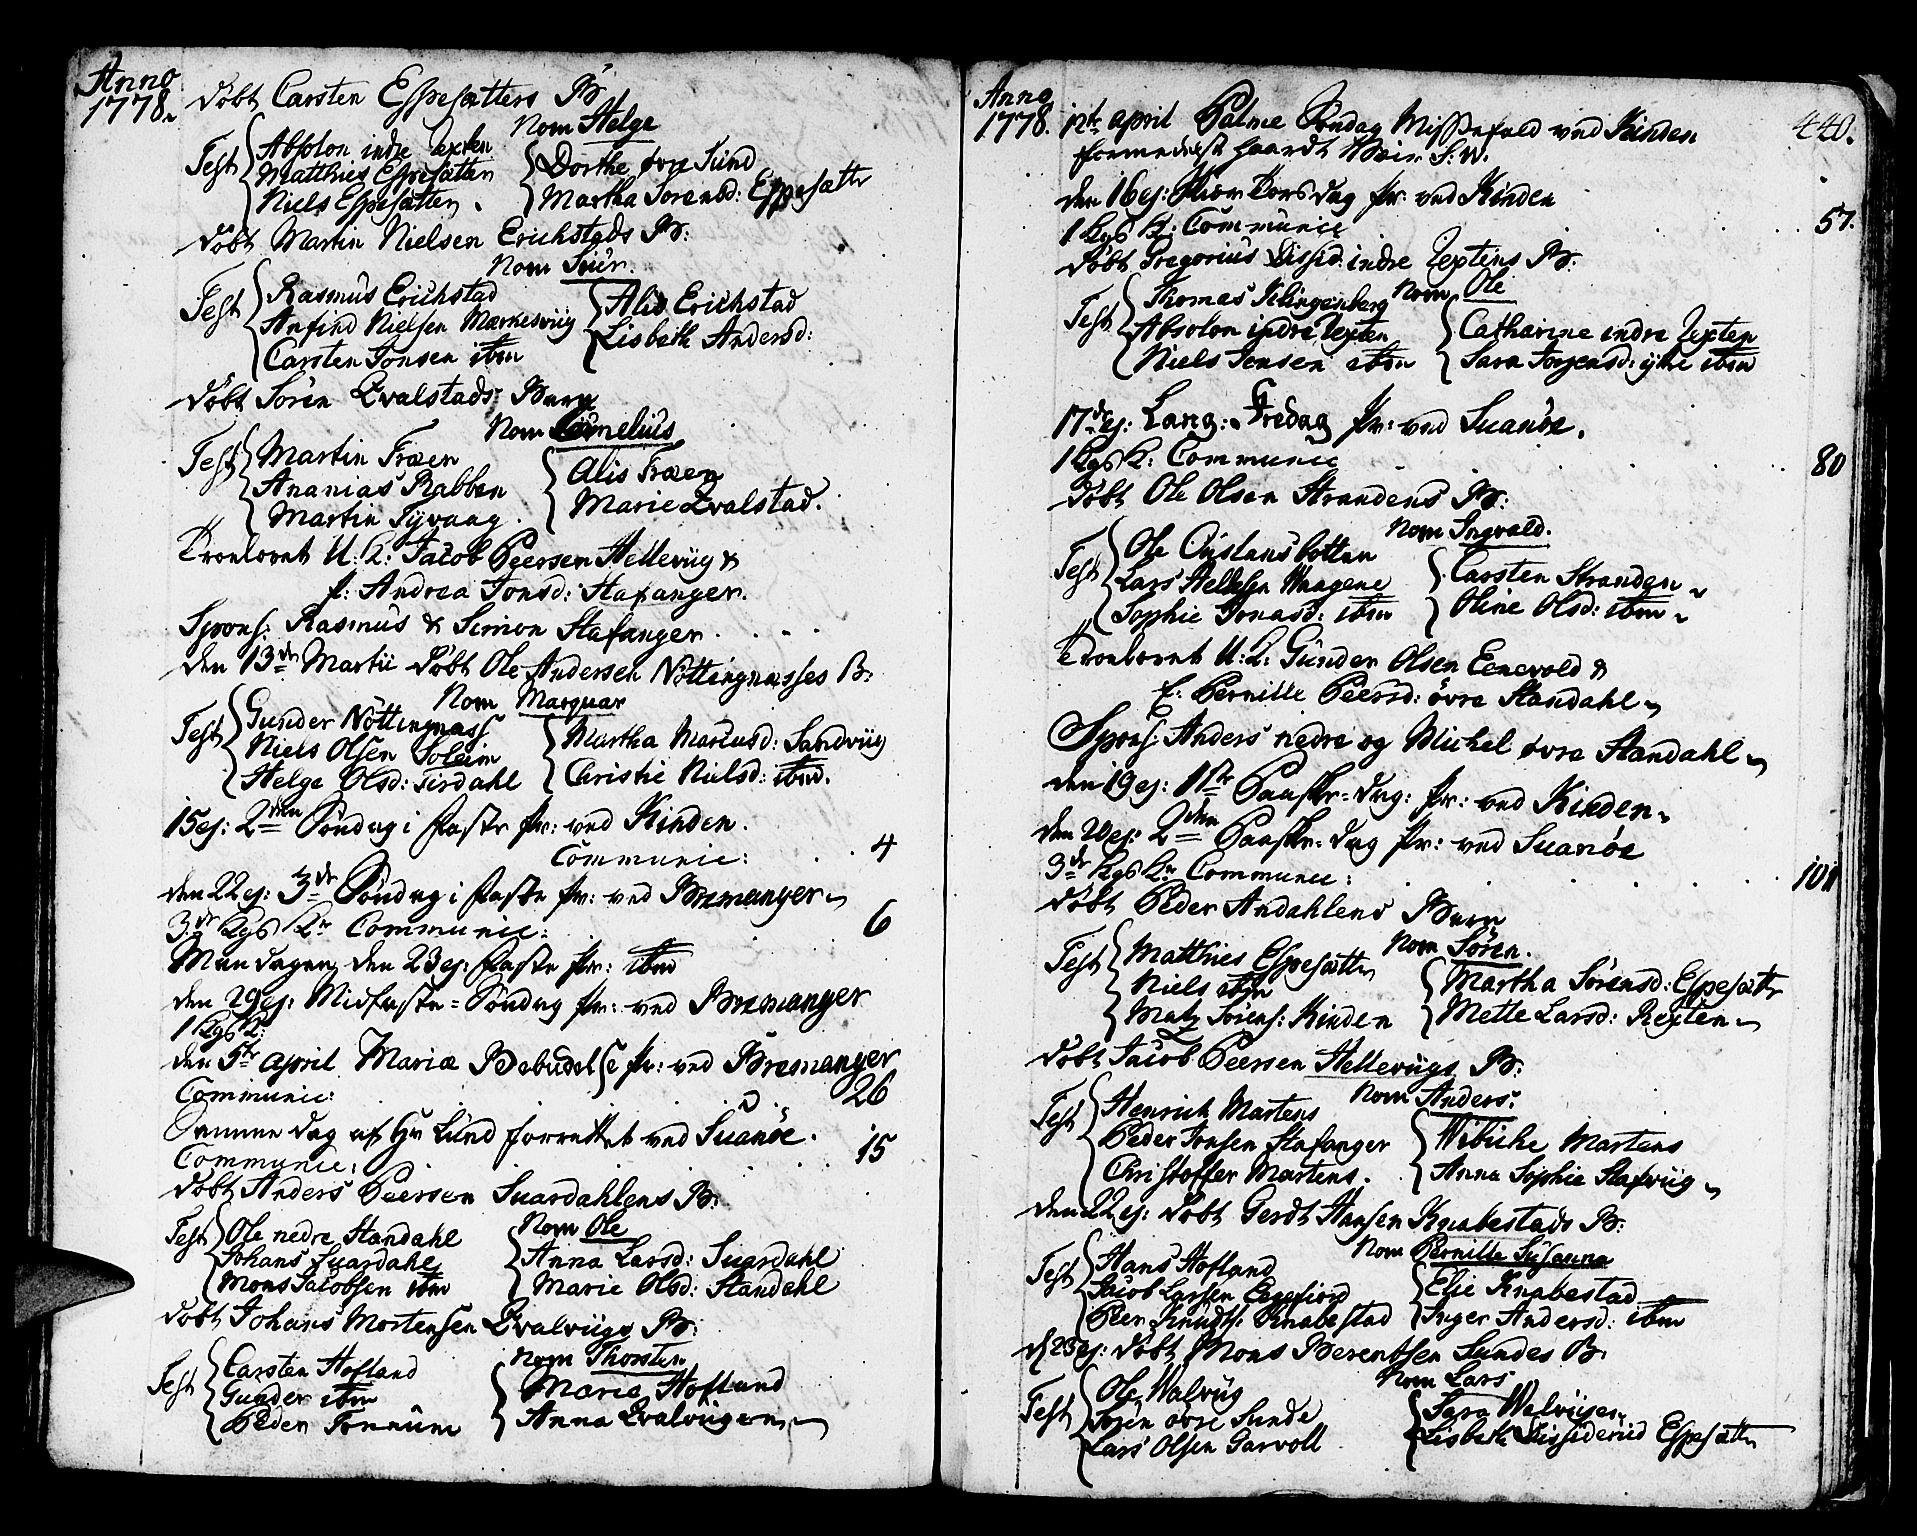 Anno
1778.
Döbt Carsten Espesætters B.
Nom Helge
Test Absolon indre Rexten
Matthies Espesætter
Niels Espesætter.
Dorthe övre Sund
Martha Sörensd: Espesætter
Döbt Martin Nielsen Erichstads B:
Nom Siur.
Test Rasmus Erichstad
Anfind Nielsen Markesviig
Carsten Jonsen ibm
Alis Erichstad
Lisbeth Andersd:
Döbt Sören Qvalstads Barn
Nom Cornelius
Test Martin Fræen
Ananias Rabben
Martin Tyvaag.
Alis Fræen
Marie Qvalstad.
Trolovet U: K: Jacob Peersen Helleviig &
f: Andrea Jonsd: Stafanger.
Spons: Rasmus & Simon Stafanger.
den 13de Martii döbt Ole Andersen Nöttingnæsses B.
Nom Marquar
Test Gunder Nöttingnæss
Niels Olsen Soleim
Helge Olsd: Tirdahl
Martha Marcusd: Sandviig
Christie Nielsd: ibm.
15 ej: 2den Söndag i Faste pr: ved Kinden.
Communic: 4
den 22 ej: 3de Söndag i Faste pr: ved Bremanger
3de Kgs Kr Communic: 6
Mandagen den 23 ej: Faste pr: ibm
den 29 ej: Midfaste-Söndag pr: ved Bremanger
1 Kgs K:
den 5te April Mariæ Bebudelse pr: ved Bremanger
Communic: 26
Samme dag af Hr Lund forrettet ved Suanöe.
Communic: 15
Döbt Anders Peersen Suardahlens B:
Nom Ole
Test Ole nedre Standahl
Johans Suardahl
Mons Jacobsen ibm
Anna Larsd: Suardahl
Marie Olsd: Standahl
Döbt Johans Mortensen Qvalviigs B:
Nom Thorsten
Test Carsten Hofland
Gunder ibm
Peder Fonnum
Marie Hofland
Anna Qvalviigen
Anno
1778.
440.
12te April Palme Söndag Missefald ved Kinden
formedelst haardt Veir S:W.
den 16 ej: Skiær Torsdag pr: ved Kinden
1 Kgs K: Communic 57.
Döbt Gregorius Dissid: indre Rextens B:
Nom Ole
Test Thomas Klingenberg
Absolon indre Rexten
Niels Jensen ibm
Catharine indre Rexten
Sara Jörgensd: ytre ibm
17de ej: Lang: Fredag pr: ved Suanöe.
1 Kgs K: Communic 80
Döbt Ole Olsen Strandens B:
Nom Ingvald.
Test Ole Önstensbotten
Lars Waagene
Sophie Jonasd: ibm
Carsten Stranden
Oline Olsd: ibm
Trolovet U: K: Gunder Olsen Eenevold &
f: Pernille Peersd: övre Standahl
Spons: Anders nedre og Michel övre Standahl
den 19 ej: 1ste Paaske-dag: pr: ved Kinden
den 20 ej: 2den Paaske-dag pr: ved Suanöe
3de Kgs Kr Communic: 101
Döbt Peder Andahlens Barn
Nom Sören.
Test Matthies Espesætter
Niels ibm
Matz Sörens: Kinden
Martha Sörensd: Espesætter
Mette Larsd: Rexten
Döbt Jacob Peersen Helleviigs B:
Nom Anders:
Test Henrich Martens
Peder Jonsen Stafanger
Christoffer Martens.
Wibiche Martens
Anna Sophie Stafviig
den 22 ej: Döbt Gerdt Hansen Knabestads B:
Nom Pernille Susanna
Test Hans Hofland
Jacob Larsen Eegefiord
Peer Knudts: Knabestad
Elie Knabestad
Inger Andersd: ibm
d 23 ej: döbt Mons Berentsen Sundes B.
Nom Lars
Test Ole Walviig
Sören övre Sunde
Lars Olsen Garvoll
Sara Walviigen
Lisbeth Espesætter